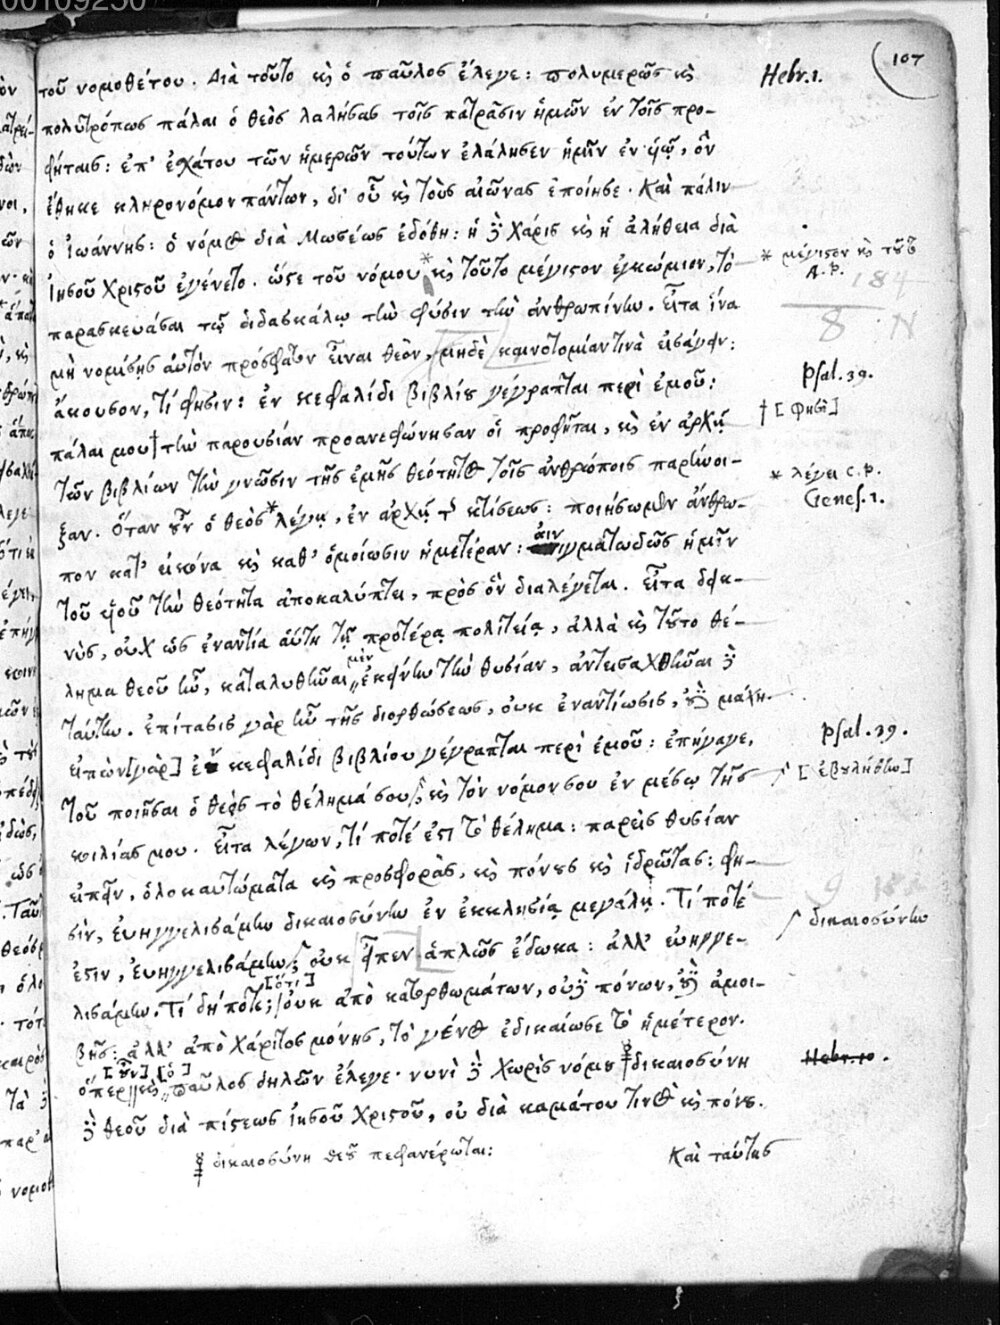 00109250
107
τοῦ νομοθέτου. Διὰ τοῦτο κ̀ς ὁ παῦλος ἔλεγε: πολυμερῶς κ̀ς
Hebr. 1.
πολυτρόπως πάλαι ὁ θεὸς λαλήσας τοῖς πατρᾶσιν ἡμῶν ἐν τοῖς προ-
φήταις: ἐπ' ἐχάτου τῶν ἡμερῶν τούτων ἐλάλησεν ἡμῖν ἐν ὑιῷ, ὃν
ἔθηκε κληρονόμον πάντων, δι' οὗ κ̀ς τοὺς αἰῶνας ἐποίησε. Καὶ πάλιν
ὁ Ἰωάννης: ὁ νόμος διὰ Μωσέως ἐδόθη: ἡ δὲ χάρις κ̀ς ἡ ἀλήθεια διὰ
Ἰησοῦ Χριστοῦ ἐγένετο. ὥστε τοῦ νόμου * κ̀ς τοῦτο μέγιστον ἐγκώμιον, τὸ
* μέγιστον κ̀ς τοῦτο A. P.
184
8 N
παρασκευάσαι τῷ διδασκάλῳ τὴν φύσιν τὴν ἀνθρωπίνην. Εἶτα ἵνα
μὴ νομίσῃς αὐτὸν πρόσφατον εἶναι θεὸν, μηδὲ καινοτομίαν τινὰ εἰσάγειν:
ἄκουσον, τί φησιν: ἐν κεφαλίδι βιβλίου γέγραπται περὶ ἐμοῦ:
Psal. 39.
πάλαι μου † τὴν παρουσίαν προανεφώνησαν οἱ προφῆται, κ̀ς ἐν ἀρχῇ
† [φησὶ]
τῶν βιβλίων τὴν γνῶσιν τῆς ἐμῆς θεότητος τοῖς ἀνθρώποις παρήνοι-
ξαν. Ὅταν οὖν ὁ θεὸς * λέγῃ, ἐν ἀρχῇ τ̃ κτίσεως: ποιήσωμεν ἄνθρω-
* λέγει C. P.
Genes. 1.
πον κατ' εἰκόνα κ̀ς καθ' ὁμοίωσιν ἡμετέραν: αἰνιγματωδῶς ἡμῖν
τοῦ υἱοῦ τὴν θεότητα ἀποκαλύπτει, πρὸς ὃν διαλέγεται. Εἶτα δεικ-
νὺς, οὐχ ὡς ἐναντία αὕτη τῇ προτέρᾳ πολιτείᾳ, ἀλλὰ κ̀ς τοῦτο θέ-
λημα θεοῦ ἦν, καταλυθῆναι μὲν ἐκείνην τὴν θυσίαν, ἀντεισαχθῆναι δὲ
ταύτην. ἐπίτασις γὰρ ἦν τῆς διορθώσεως, οὐκ ἐναντίωσις, οὐδὲ μάχη.
εἰπὼν [γὰρ] ἐν κεφαλίδι βιβλίου γέγραπται περὶ ἐμοῦ: ἐπήγαγε,
Psal. 39.
τοῦ ποιῆσαι ὁ θεὸς τὸ θέλημά σου, κ̀ς τὸν νόμον σου ἐν μέσῳ τῆς
[ἐβουλήθην]
κοιλίας μου. Εἶτα λέγων, τί ποτέ ἐστι τὸ θέλημα: παρεὶς θυσίαν
εἰπεῖν, ὁλοκαυτώματα κ̀ς προσφορὰς, κ̀ς πόνους κ̀ς ἱδρῶτας: φη-
σὶν, ἐυηγγελισάμην δικαιοσύνην ἐν ἐκκλησίᾳ μεγάλῃ. Τί ποτέ
δικαιοσύνην
ἐστιν, ἐυηγγελισάμην; οὐκ εἶπεν ἁπλῶς ἔδωκα: ἀλλ' ἐυηγγε-
λισάμην. Τί δή ποτε; [ὅτι] οὐκ ἀπὸ κατορθωμάτων, οὐδὲ πόνων, οὐδὲ ἀμοι-
βῆς: ἀλλ' ἀπὸ χάριτος μόνης, τὸ γένος ἐδικαίωσε τὸ ἡμέτερον.
ὅπερ [οὖν] κ̀ς [ὁ] παῦλος δηλῶν ἔλεγε. νυνὶ δὲ χωρὶς νόμου δικαιοσύνη
Hebr. 10.
δὲ θεοῦ διὰ πίστεως Ἰησοῦ Χριστοῦ, οὐ διὰ καμάτου τινὸς κ̀ς πόνου.
δικαιοσύνη θεοῦ πεφανέρωται:
Καὶ ταύτης